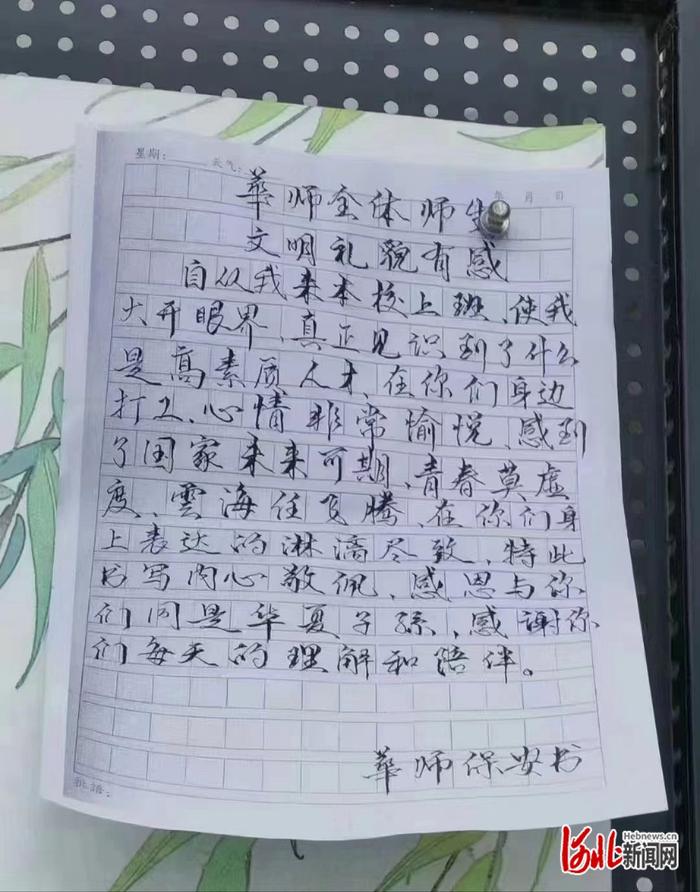 星期: 天气:
年 月 日
華师全体师生
文明礼貌有感
自从我来本校上班、使我
大开眼界、真正见识到了什么
是高素质人才、在你们身边
打工、心情非常愉悦、感到
了国家未来可期、青春莫虚
度、雲海任飞腾、在你们身
上表达的淋漓尽致、特此
书写内心敬佩、感恩与你
们同是华夏子孫、感谢你
们每天的理解和陪伴。
華师保安书
批语:
河北新闻网
Hebnews.cn